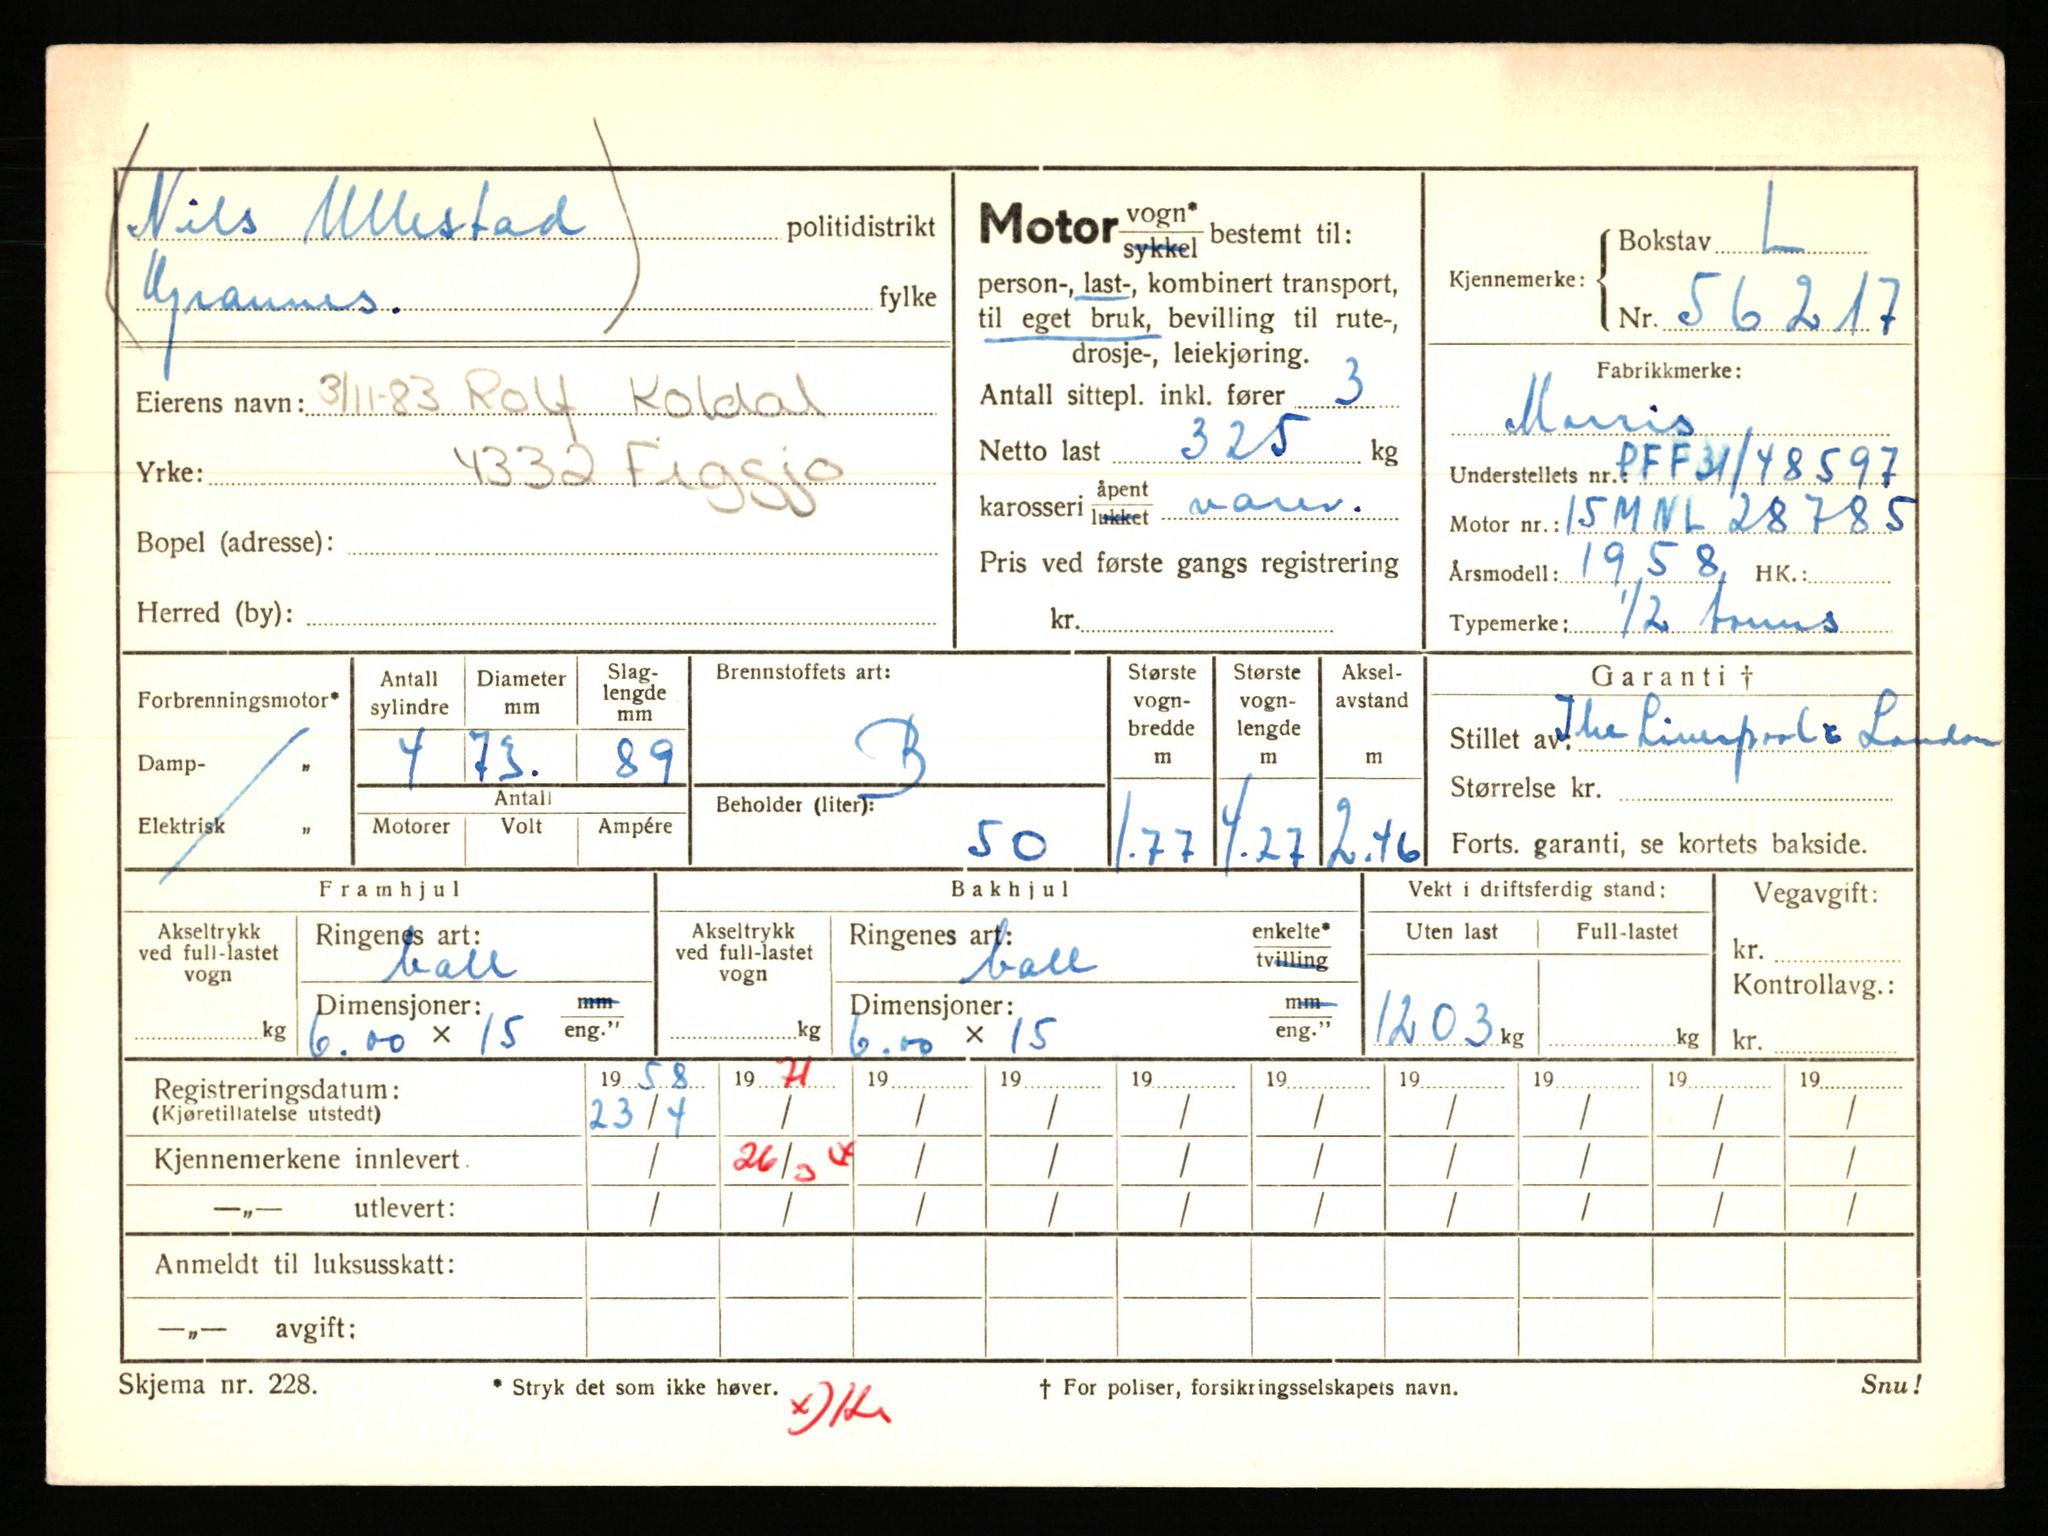 Nils Ullestad politidistrikt
Grannes. fylke
Eierens navn: 3/11-83 Rolf Koldal
Yrke: 4332 Figgjo
Bopel (adresse):
Herred (by):
Motor vogn* / sykkel bestemt til:
person-, last-, kombinert transport,
til eget bruk, bevilling til rute-,
drosje-, leiekjøring.
Antall sittepl. inkl. fører 3
Netto last 325 kg
karosseri åpent / lukket varev.
Pris ved første gangs registrering
kr.
Kjennemerke: Bokstav L
Nr. 56217
Fabrikkmerke:
Morris
Understellets nr.: PFF31/48597
Motor nr.: 15MNL 28785
Årsmodell: 1958 HK.:
Typemerke: 1/2 tonns
Forbrenningsmotor*
Damp- „
Elektrisk „
Antall sylindre Diameter mm Slag-lengde mm
4 73. 89
Antall
Motorer Volt Ampére
Brennstoffets art:
B
Beholder (liter):
50
Største vogn-bredde m
1.77
Største vogn-lengde m
4.27
Aksel-avstand m
2.46
Garanti †
Stillet av: The Liverpool & London
Størrelse kr.
Forts. garanti, se kortets bakside.
Framhjul
Akseltrykk ved full-lastet vogn
kg
Ringenes art:
ball
Dimensjoner: mm / eng.”
6.00 × 15
Bakhjul
Akseltrykk ved full-lastet vogn
kg
Ringenes art: enkelte* / tvilling
ball
Dimensjoner: mm / eng.”
6.00 × 15
Vekt i driftsferdig stand:
Uten last Full-lastet
1203 kg kg
Vegavgift:
kr.
Kontrollavg.:
kr.
Registreringsdatum: 1958 1971 19 19 19 19 19 19 19 19
(Kjøretillatelse utstedt) 23/4 / / / / / / / / /
Kjennemerkene innlevert / 26/3 x / / / / / / / /
—„— utlevert: / / / / / / / / / /
Anmeldt til luksusskatt:
—„— avgift:
Skjema nr. 228. * Stryk det som ikke høver. † For poliser, forsikringsselskapets navn. Snu!